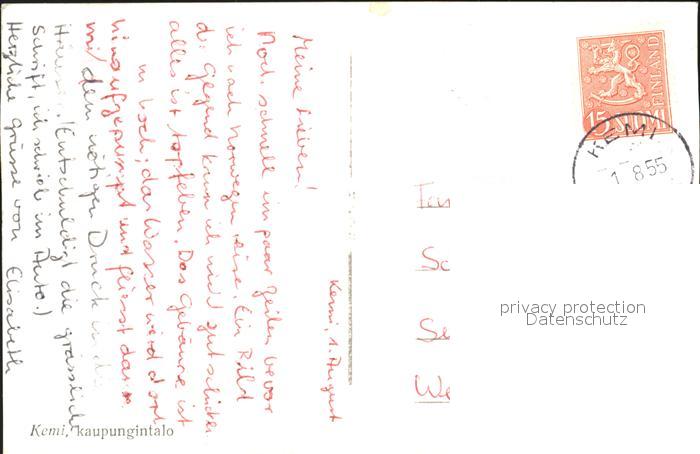 Kemi, 1. August
Meine Lieben!
Noch schnell ein paar Zeilen bevor
ich nach Norwegen reise. Ein Bild
d. Gegend kann ich nicht gut schicken
alles ist topfeben. Das Gebäude ist
das Wasser wird dort
hinaufgepumpt und fliesst dann
mit dem nötigen Druck in die
Häuser. (Entschuldigt die grässliche
Schrift, ich schrieb im Auto.)
Herzliche Grüsse von Elisabeth
Kemi, kaupungintalo
15 SUOMI
FINLAND
KEMI
1 8 55
Sc
Se
We
privacy protection
Datenschutz